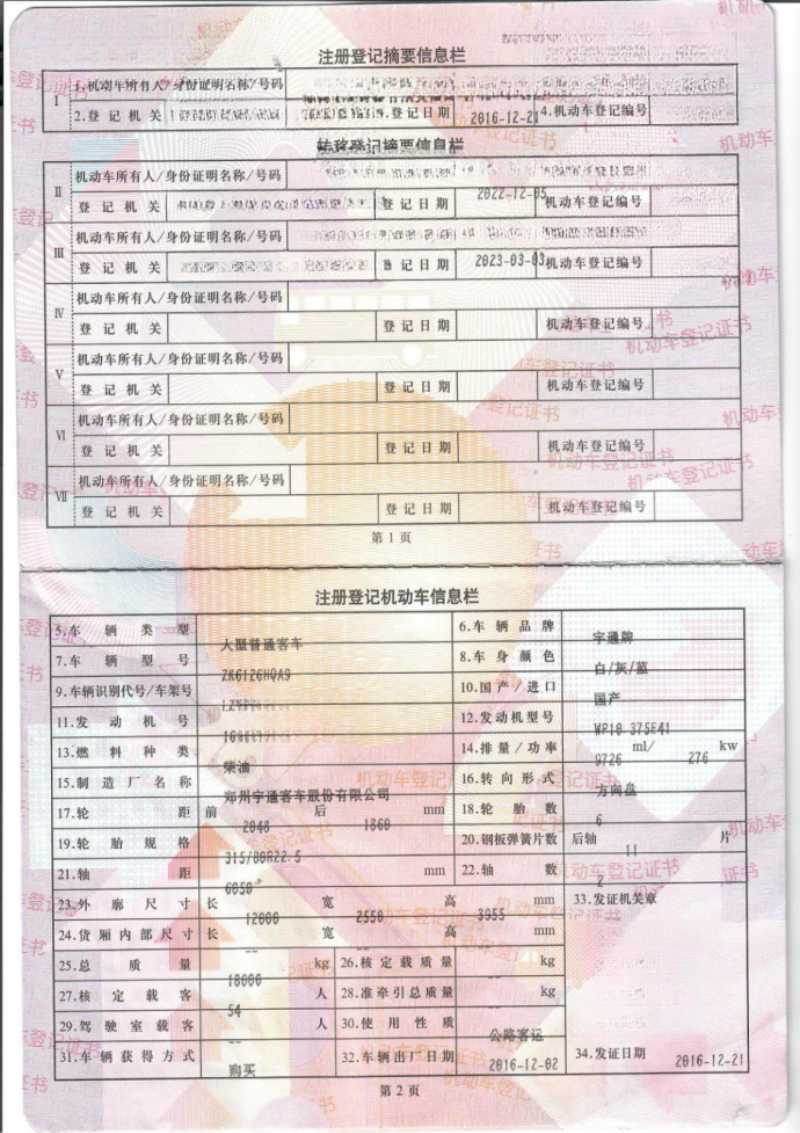 注册登记摘要信息栏
I 1.机动车所有人/身份证明名称/号码
2.登记机关 3.登记日期 2016-12-21 4.机动车登记编号
转移登记摘要信息栏
II 机动车所有人/身份证明名称/号码
登记机关 登记日期 2022-12-05 机动车登记编号
III 机动车所有人/身份证明名称/号码
登记机关 登记日期 2023-03-03 机动车登记编号
IV 机动车所有人/身份证明名称/号码
登记机关 登记日期 机动车登记编号
V 机动车所有人/身份证明名称/号码
登记机关 登记日期 机动车登记编号
VI 机动车所有人/身份证明名称/号码
登记机关 登记日期 机动车登记编号
VII 机动车所有人/身份证明名称/号码
登记机关 登记日期 机动车登记编号
第1页
注册登记机动车信息栏
5.车辆类型 大型普通客车 6.车辆品牌 宇通牌
7.车辆型号 ZK6126HQA9 8.车身颜色 白/灰/蓝
9.车辆识别代号/车架号 10.国产/进口 国产
11.发动机号 12.发动机型号 WP10.375E41
13.燃料种类 柴油 14.排量/功率 9726 ml/ 276 kw
15.制造厂名称 郑州宇通客车股份有限公司 16.转向形式 方向盘
17.轮距 前 2048 后 1860 mm 18.轮胎数 6
19.轮胎规格 315/80R22.5 20.钢板弹簧片数 后轴 11 片
21.轴距 6050 mm 22.轴数 2
23.外廓尺寸 长 12000 宽 2550 高 3955 mm 33.发证机关章
24.货厢内部尺寸 长 -- 宽 -- 高 -- mm
25.总质量 18000 kg 26.核定载质量 -- kg
27.核定载客 54 人 28.准牵引总质量 -- kg
29.驾驶室载客 -- 人 30.使用性质 公路客运
31.车辆获得方式 购买 32.车辆出厂日期 2016-12-02 34.发证日期 2016-12-21
第2页